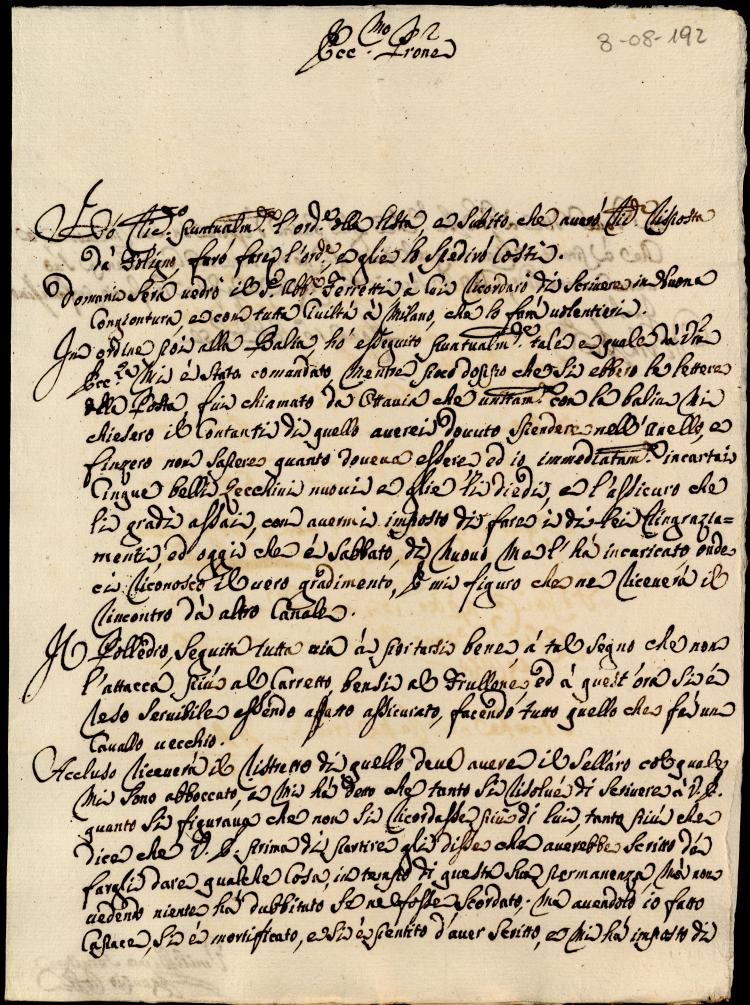 8-08-192
Ecc.mo Sig.r
Prone
puntualm.te l'ord.e della lista, e subito, che averò risposta
da Foligno, farò fare l'ord.e e glie lo spedirò costì.
Domani sera vedrò il S.r Abb.e Ferretti à cui ricordarò di scrivere in buona
congiontura, e con tutta civiltà à Milano, che lo farà volentieri.
In ordine poi alla Balia, hò eseguito puntualm.te tale e quale da V.ra
Ecc.za mi è stato comandato, mentre poco doppo che si ebbero le lettere
della Posta, fui chiamato da Ottavia che unitam.te con la balia mi
chiesero il contanti di quello averei dovuto spendere nell'anello, e
finsero non sapere quanto doveva essere ed io immediatam.te incartai
cinque belli zecchini nuovi e glie li diedi, e l'assicuro che
li gradì assai, con avermi imposto di fare i di lei ringrazia=
menti ed oggi che è sabbato, di nuovo me l'hà incaricato onde
ci riconosco il vero gradimento, e mi figuro che ne riceverà il
rincontro dà altro canale.
Il Polledro, seguita tutta via à portarsi bene à tal segno che non
l'attacca più al carretto, bensì al frullone, ed à quest'ora si è
reso servibile essendo affatto assicurato, facendo tutto quello che fà un
cavallo vecchio.
Accluso riceverà il ristretto di quello deve avere il sellàro col quale
mi sono abboccato, e mi hà detto che tanto si risolué di scrivere à V.E.
quanto si figurava che non si ricordasse più di lui, tanto più che
dice che V.E. prima di partire gli disse che averebbe scritto dà
fargli dare qualche cosa, in tempo di questa sua permanenza, mà non
vedendo niente hà dubbitato se ne fosse scordato, mà avendolo io fatto
capace, si è mortificato, e si è pentito d'aver scritto, e mi hà imposto di